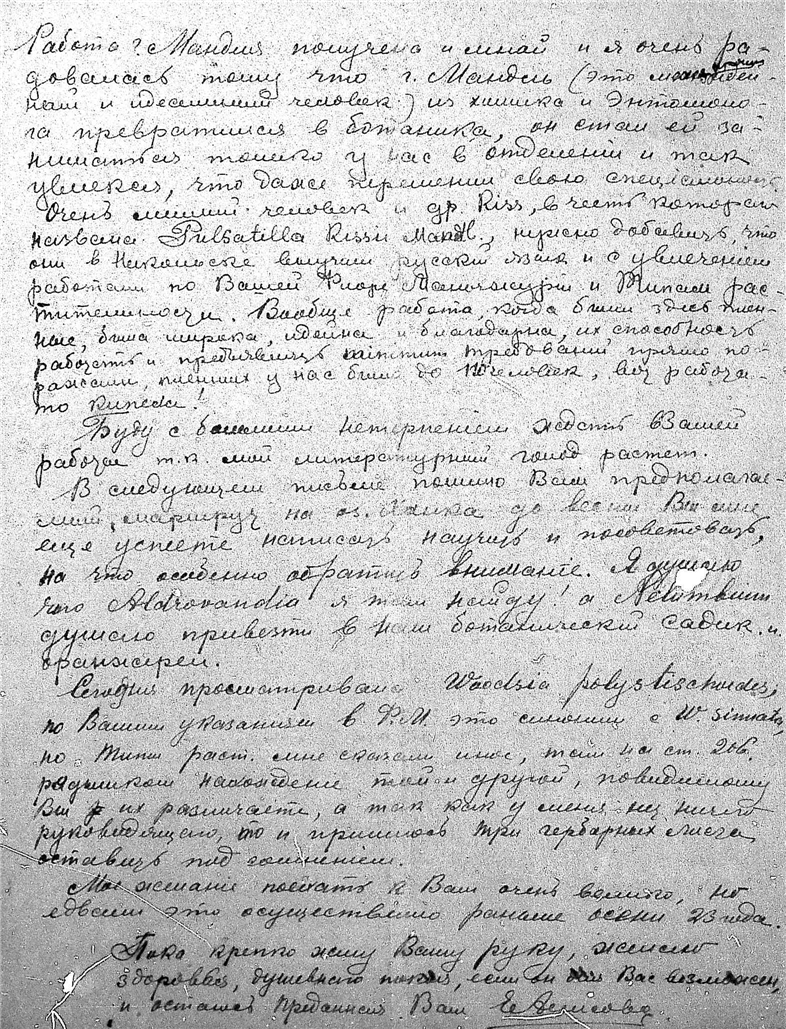 Работа г. Манделя получена и мной и я очень ра-
довалась тому что г. Мандель (это идей-
ный и идеальный человек) из химика и Энтомоло-
га превратился в ботаника, он стал ей за-
ниматься только у нас в отделении и так
увлекся, что даже переменил свою специальность
Очень милый человек и др. Riss, в честь которого
названа Pulsatilla Rissii Mandl., нужно добавить, что
они в Никольске выучили русский язык и с увлечением
работали по Вашей Флоре Маньчжурии и Типам рас-
тительности. Вообще работа, когда были здесь плен-
ные, была широка, идейна и благодарна, их способность
работать и предъявить требований прямо по-
ражали, пленных у нас было до 110 человек, вот работа-
то кипела!
Буду с большим нетерпением ждать Вашей
работы т.к. мой литературный голод растет.
В следующем письме пошлю Вам предполагае-
мый маршрут на оз. Ханка до весны Вы мне
еще успеете написать научить и посоветовать,
на что особенно обратить внимание. Я думаю
что Aldrovandia я там найду! а Nelumbium
думаю привезти в наш ботанический садик и
оранжереи.
Сегодня просматривала Woodsia polystischoides,
по Вашим указаниям в Ф.М. это синоним с W. sinuata,
по Типам раст. мне сказали иное, там на ст. 206.
рядышком нахождение той и другой, повидимому
Вы их различаете, а так как у меня нет ничего
руководящего, то и пришлось три гербарных листа
оставить под сомнением.
Мое желание поехать к Вам очень велико, но
едвали это осуществимо раньше осени 23 года.
Пока крепко жму Вашу руку, желаю
здоровья, душевного покоя, если он для Вас возможен,
и остаюсь преданная Вам Е. Денисова.